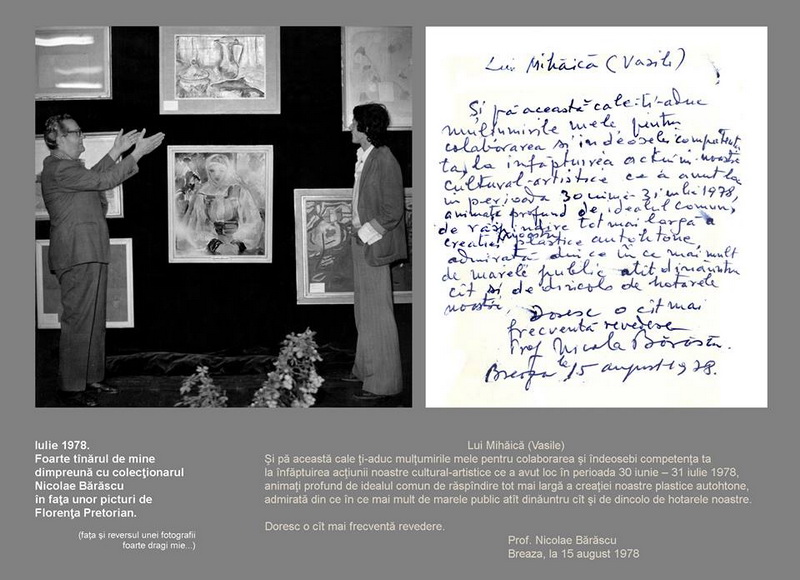 Lui Mihăică (Vasile)
Și pă această cale ți-aduc
mulțumirile mele pentru
colaborarea și îndeosebi competen-
ța ta, la înfăptuirea acțiunii noastre
cultural-artistice ce a avut loc
în perioada 30 iunie - 31 iulie 1978,
animați profund de idealul comun,
de răspîndire tot mai largă a
creației noastre plastice autohtone,
admirată din ce în ce mai mult
de marele public atît dinăuntru
cît și de dincolo de hotarele
noastre,
Doresc o cît mai
frecventă revedere
Prof. Nicolae Bărăscu.
Breaza, la 15 august 1978.
Iulie 1978.
Foarte tînărul de mine
dimpreună cu colecţionarul
Nicolae Bărăscu
în faţa unor picturi de
Florenţa Pretorian.
(fața și reversul unei fotografii
foarte dragi mie...)
Lui Mihăică (Vasile)
Și pă această cale ți-aduc mulțumirile mele pentru colaborarea și îndeosebi competența ta
la înfăptuirea acțiunii noastre cultural-artistice ce a avut loc în perioada 30 iunie – 31 iulie 1978,
animați profund de idealul comun de răspîndire tot mai largă a creației noastre plastice autohtone,
admirată din ce în ce mai mult de marele public atît dinăuntru cît şi de dincolo de hotarele noastre.
Doresc o cît mai frecventă revedere.
Prof. Nicolae Bărăscu
Breaza, la 15 august 1978